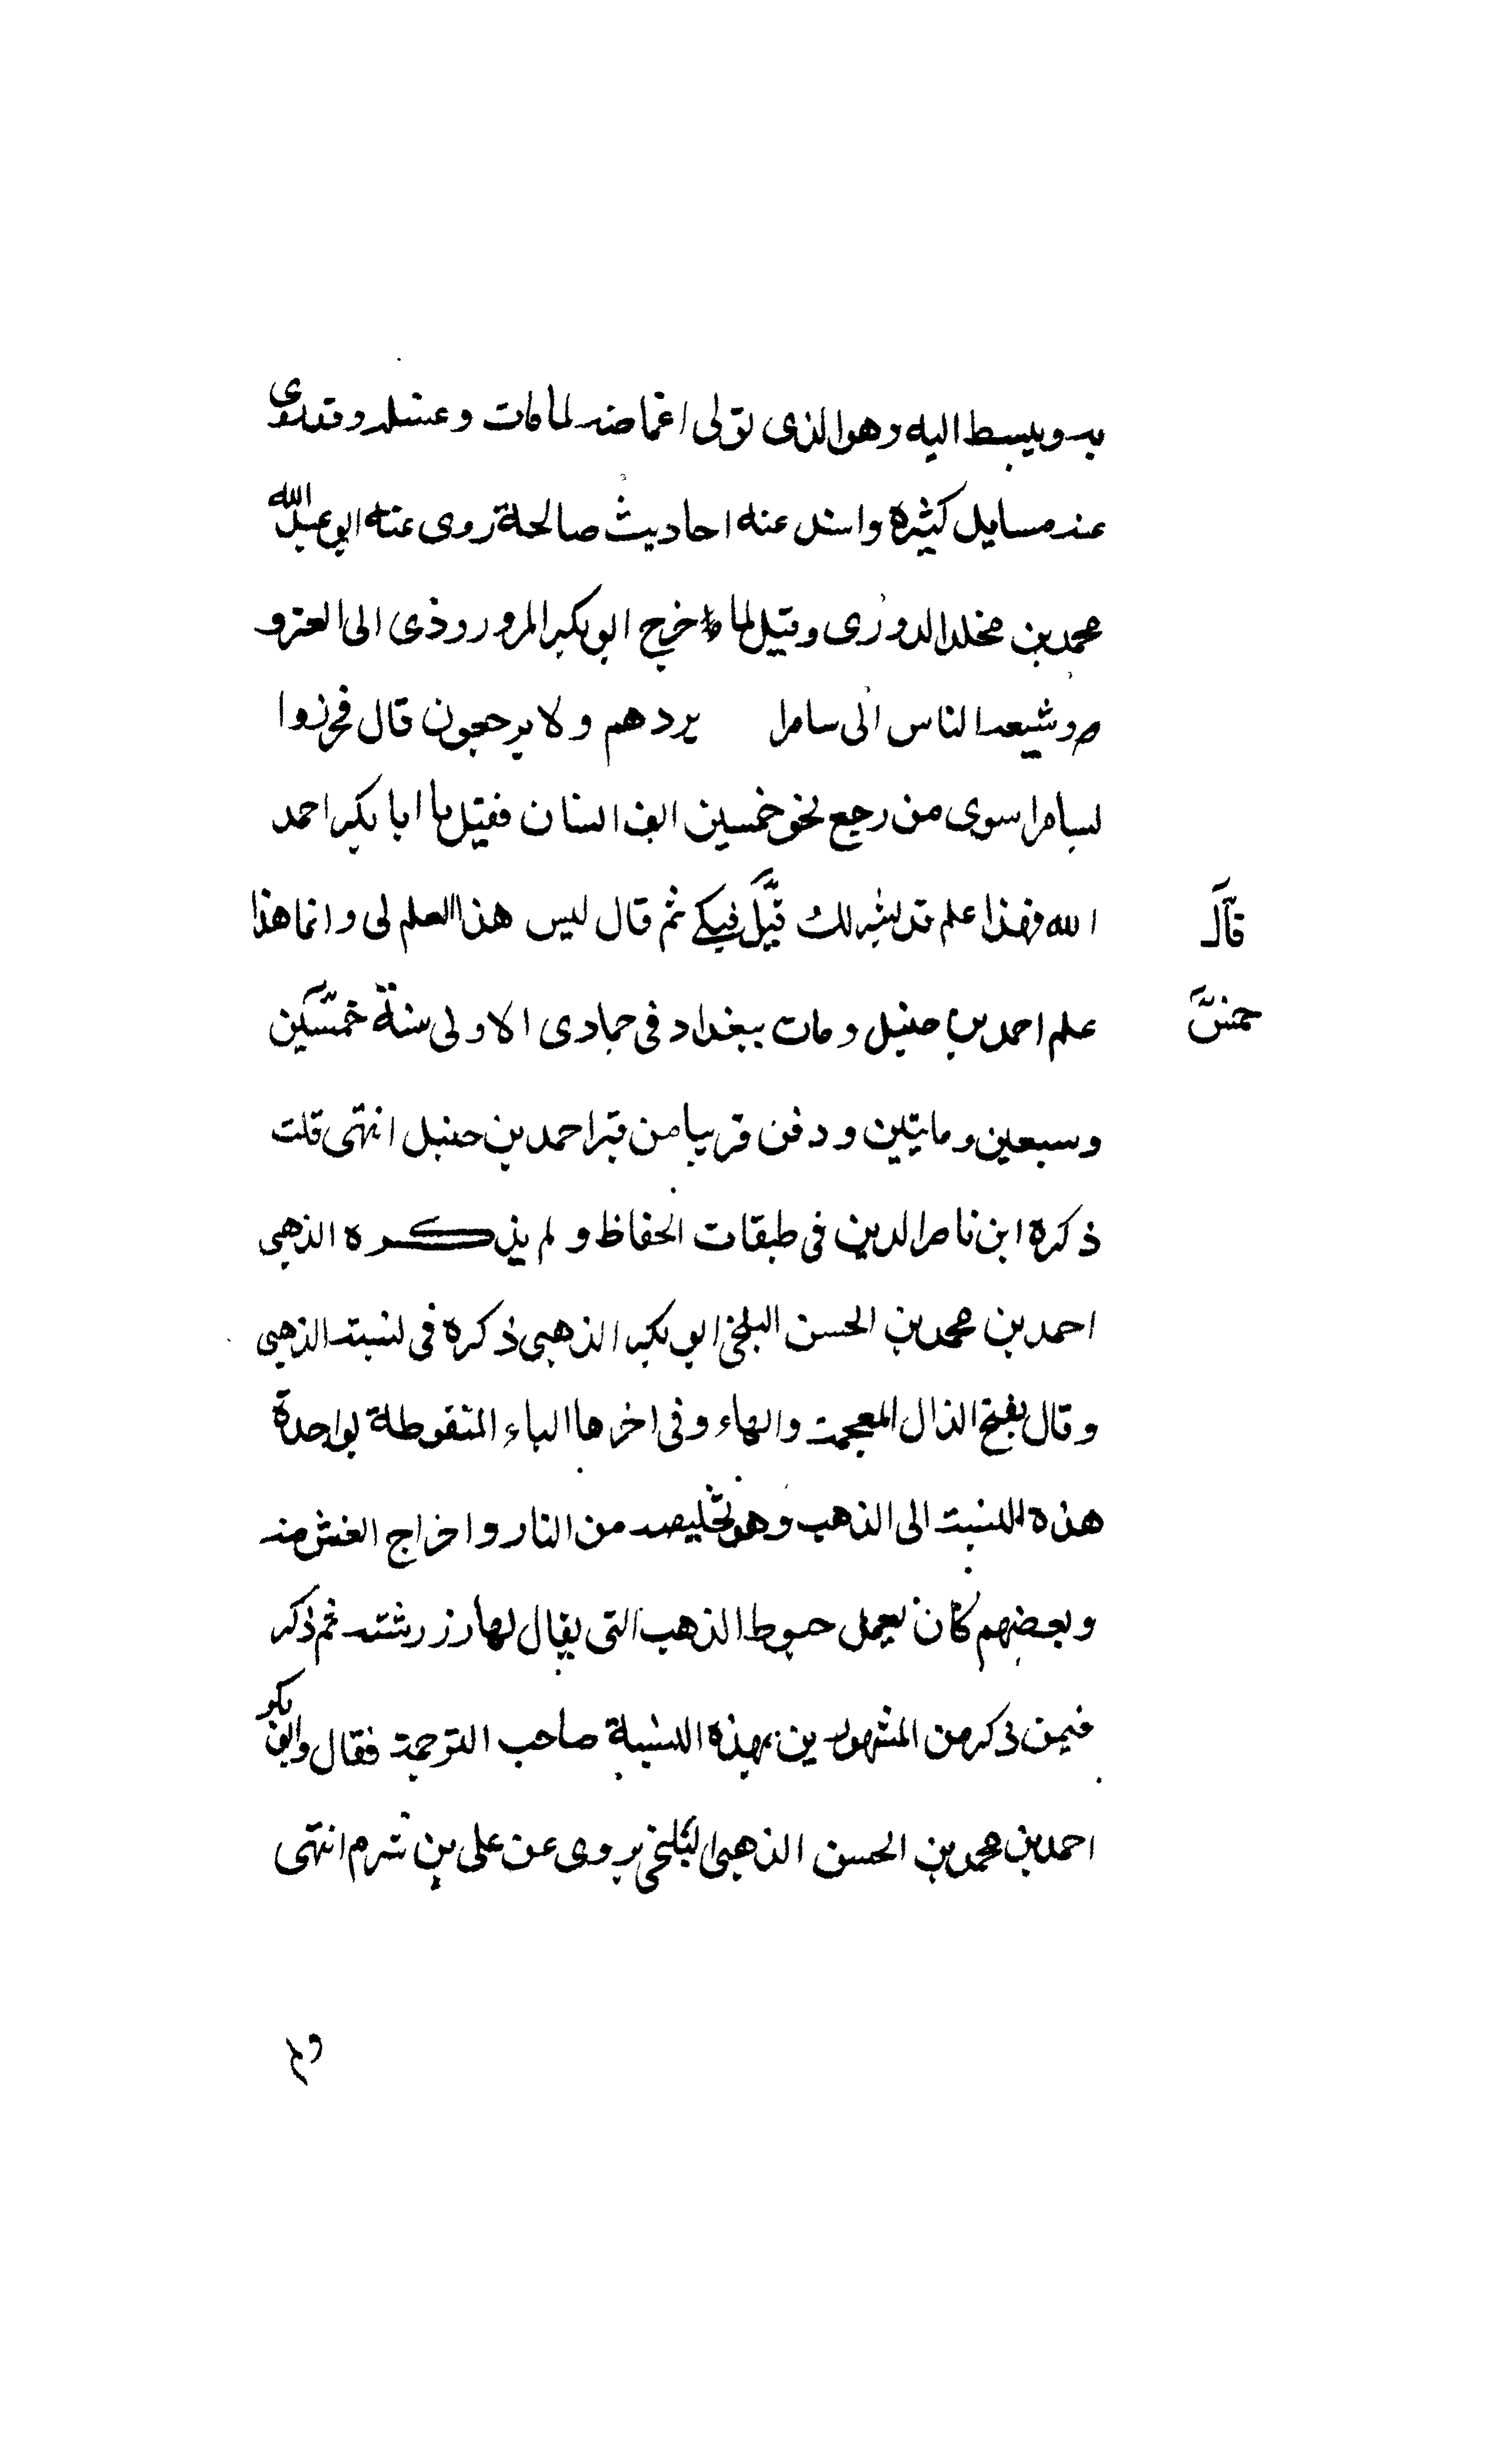 به وينبسط اليه وهو الذى تولى اغماضه لما مات وغسله وقد روى
عنه مسايل كثيرة واسند عنه احاديث صالحة روى عنه ابو عبد الله
محمد بن مخلد الدورى وقيل لما خرج ابو بكر المروروذى الى الغزو
وشيعه الناس الى سامرا يردهم ولا يرجعون قال فحرزوا
بسامرا سوى من رجع نحو خمسين الف انسان فقيل يا ابا بكر احمد
الله فهذا علم قد نشر لك قيل فبكى ثم قال ليس هذا العلم لى وانما هذا
قال
علم احمد بن حنبل ومات ببغداد فى جمادى الاولى سنة خمسين
خمس
وسبعين ومايتين ودفن قريبا من قبر احمد بن حنبل انتهى قلت
ذكره ابن ناصر الدين فى طبقات الحفاظ ولم يذكره الذهبى
احمد بن محمد بن الحسن البلخى ابو بكر الذهبى ذكره فى نسبته الذهبى
وقال بفتح الذال المعجمة والهاء وفى اخرها الباء المنقوطة بواحدة
هذه النسبة الى الذهب وهو تخليصه من النار واخراج الغش منه
وبعضهم كان يعمل خيوط الذهب التى يقال لها زررشته ثم ذكر
فيمن ذكر من المشهورين بهذه النسبة صاحب الترجمة فقال وابو بكر
احمد بن محمد بن الحسن الذهبى البلخى يروى عن على بن شرم انتهى